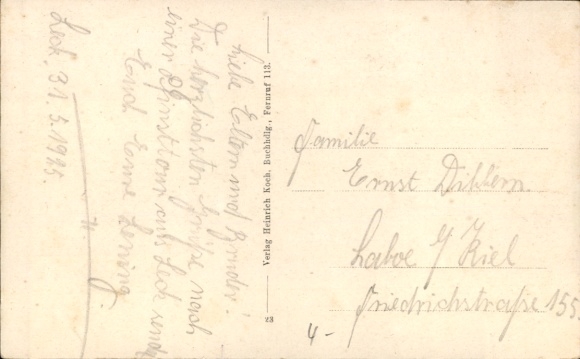 Leck, 31.3.1925.
Liebe Eltern und Bruder!
Die herzlichsten Grüße nach
einer aus Leck sendet
Euch Eure
Verlag Heinrich Koch, Buchhdlg., Fernruf 113.
23
Familie
Ernst
Laboe b/ Kiel
Friedrichstraße 155.
4 -